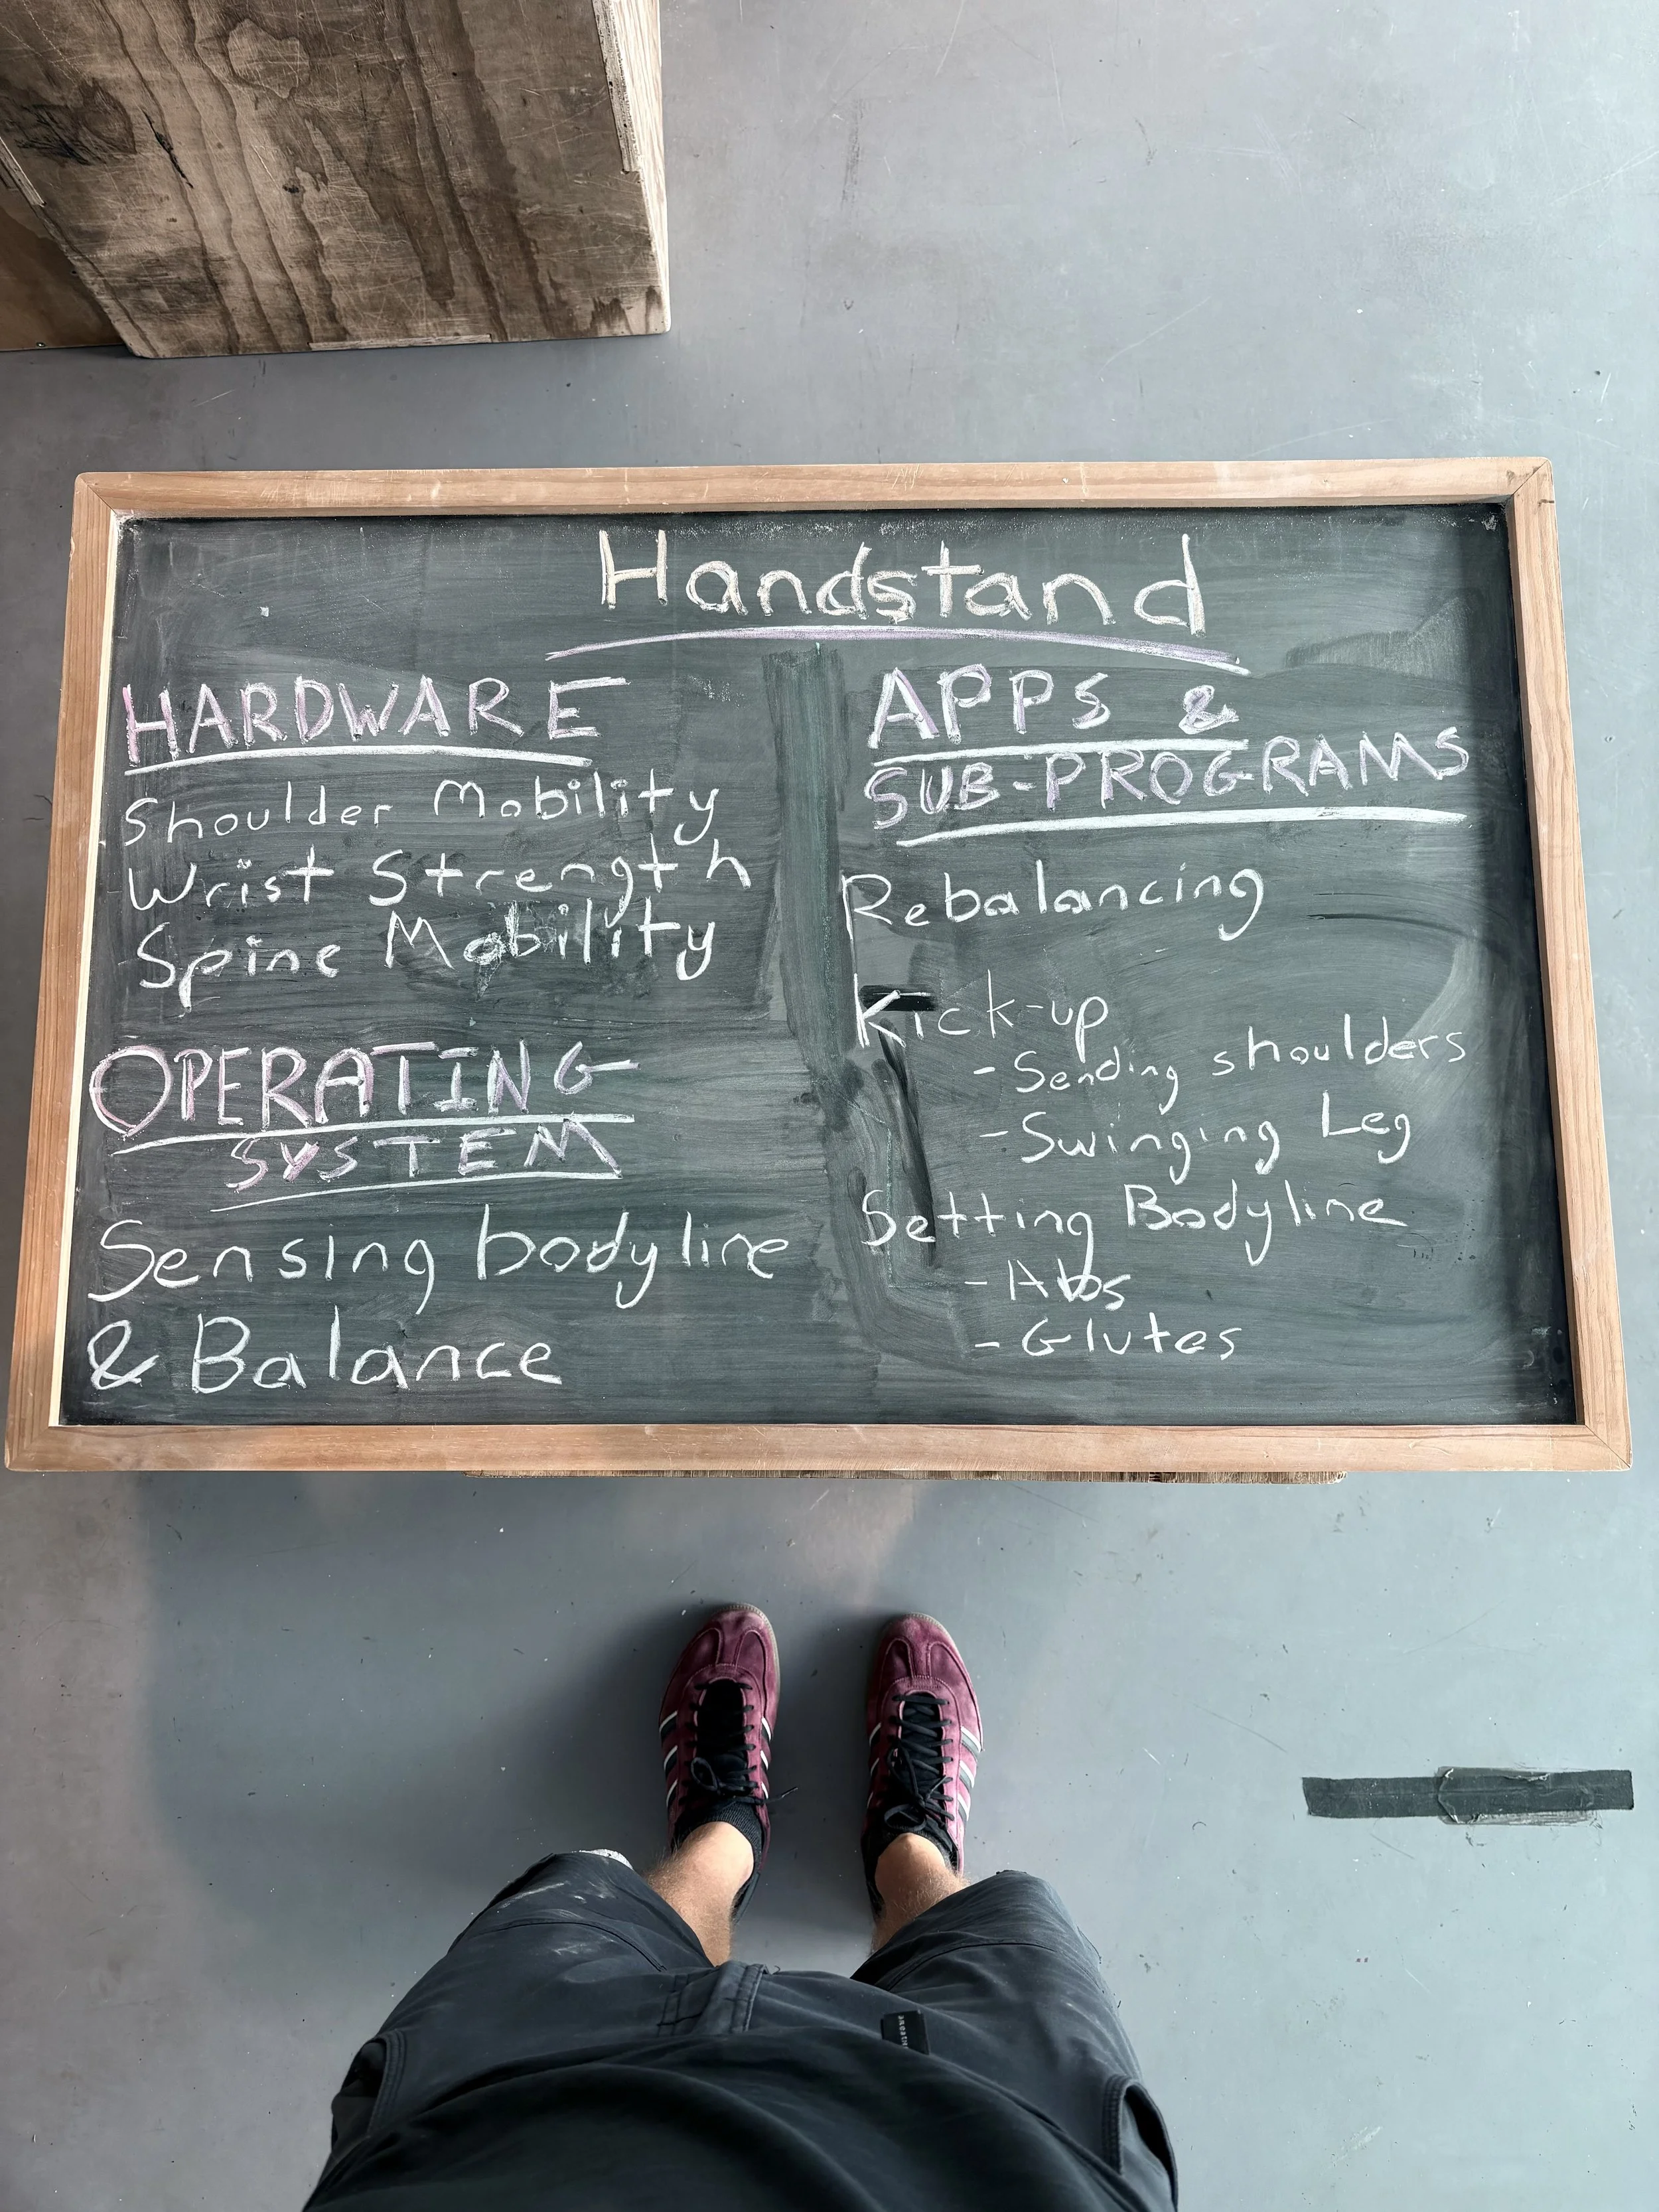 Handstand
HARDWARE
Shoulder Mobility
Wrist Strength
Spine Mobility
OPERATING
SYSTEM
Sensing bodyline
& Balance
APPS &
SUB-PROGRAMS
Rebalancing
Kick-up
- Sending shoulders
- Swinging Leg
Setting Bodyline
- Abs
- Glutes